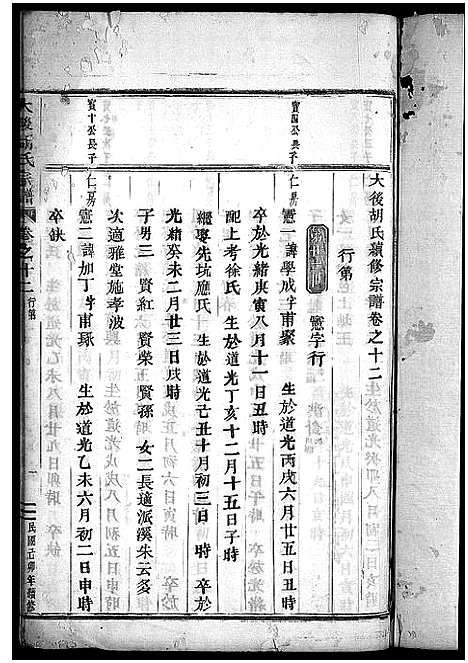 大後胡氏續修宗譜卷之十二
行第
憲字行
寶四公長子
仁房
憲一諱學成字甫聚 生於道光丙戌六月廿五日丑時
卒於光緒庚寅八月十一日丑時
配上考徐氏 生於道光丁亥十二月十五日子時
繼娶先坑應氏 生於道光己丑十月初三日 時 卒於
光緒癸未二月廿三日戌時
子男三 賢紅 賢榮 賢孫 女二長適派溪朱云多
次適雅堂施孝波
寶十公長子
仁房
憲二諱加丁字甫琢 生於道光乙未六月初二日申時
卒缺
大後胡氏宗譜 卷之十二 行第
一
民國己卯年續修